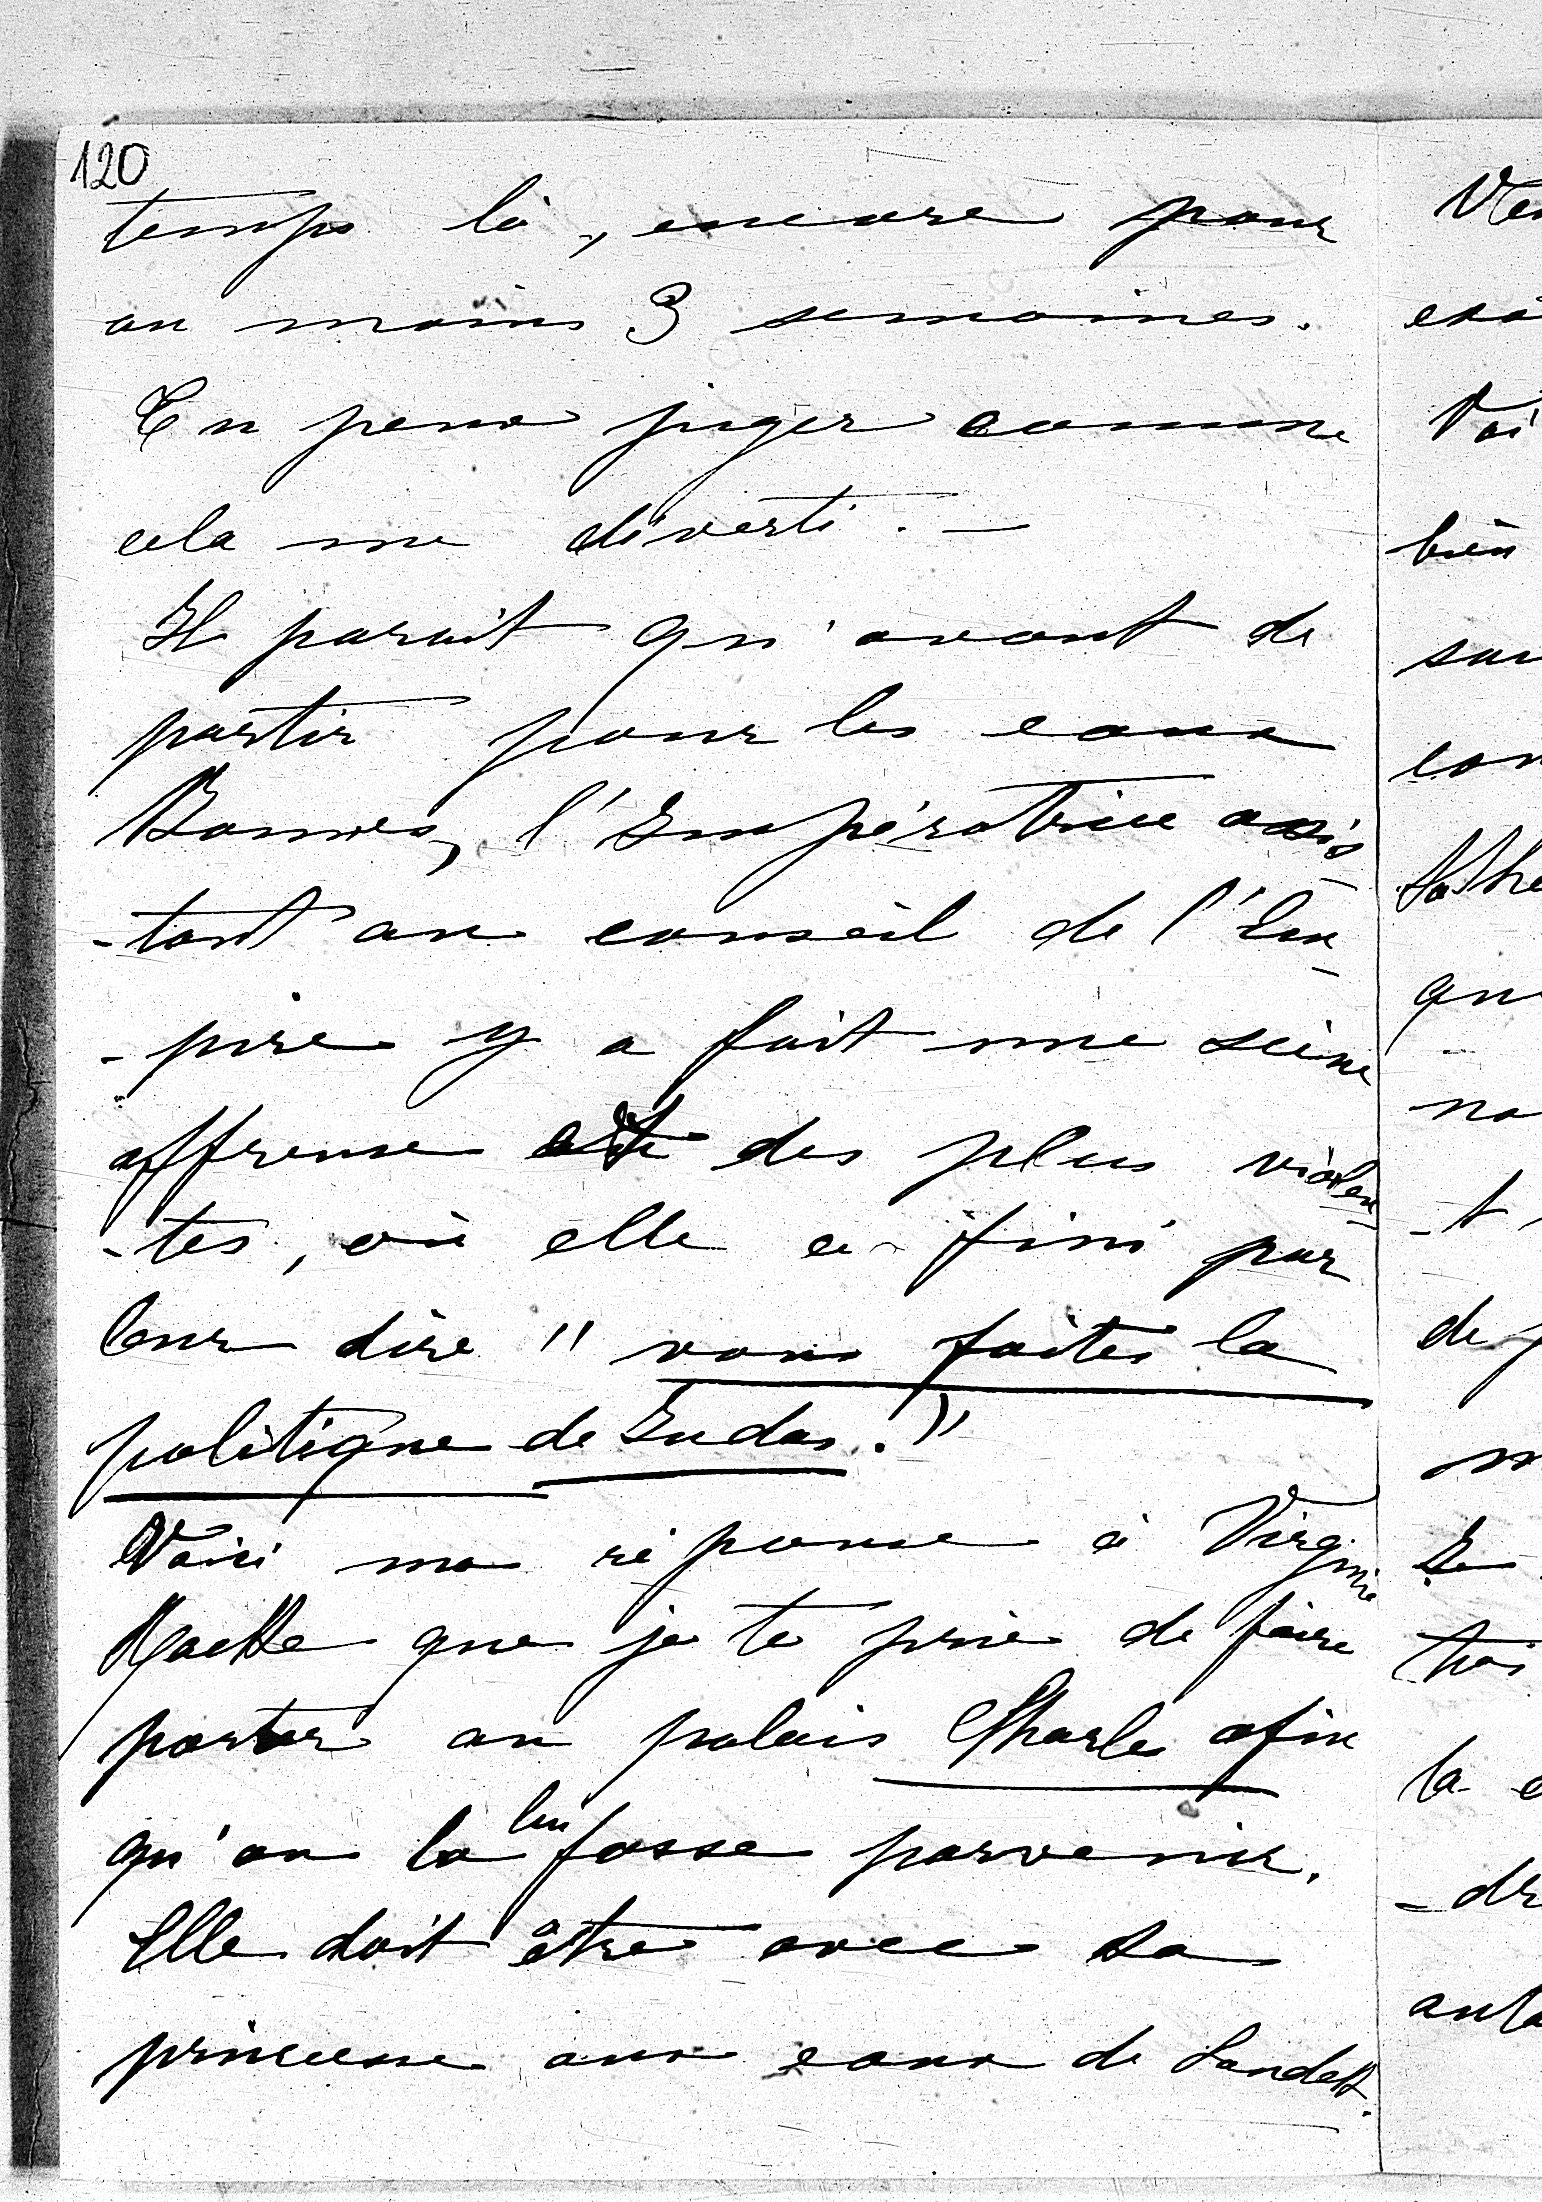 120
temps là, encore pour
au moins 3 semaines.
Tu peux juger comme
cela me diverti. —
Il parait qu'avant de
partir pour les eaux
Bonnes, l'Impératrice assis
-tant au conseil de l'Em-
-pire y a fait une scène
affreuse et des plus violen-
-tes, où elle a fini par
leur dire "vous faites la
politique de Judas."
Voici ma réponse à Virginie
que je te prie de faire
porter au palais Charles afin
qu'on la lui fasse parvenir.
Elle doit être avec sa
princesse aux eaux de Landek.
bien
de
la